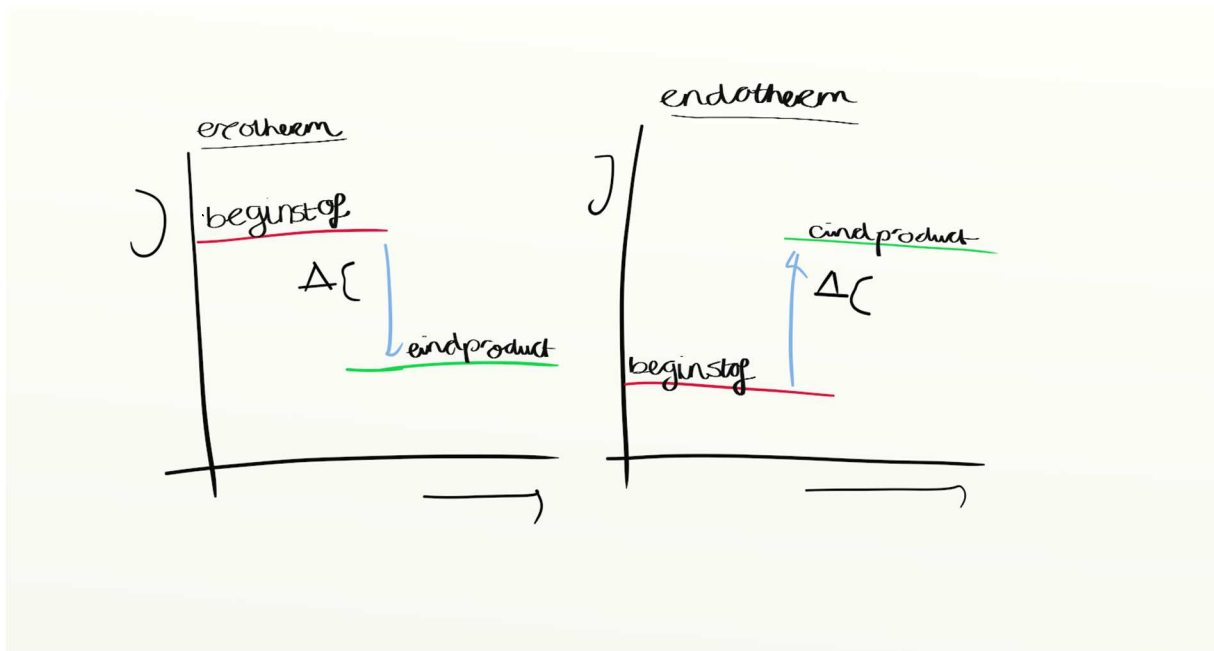 exotherm
J
beginstof
ΔE
eindproduct
endotherm
J
eindproduct
ΔE
beginstof